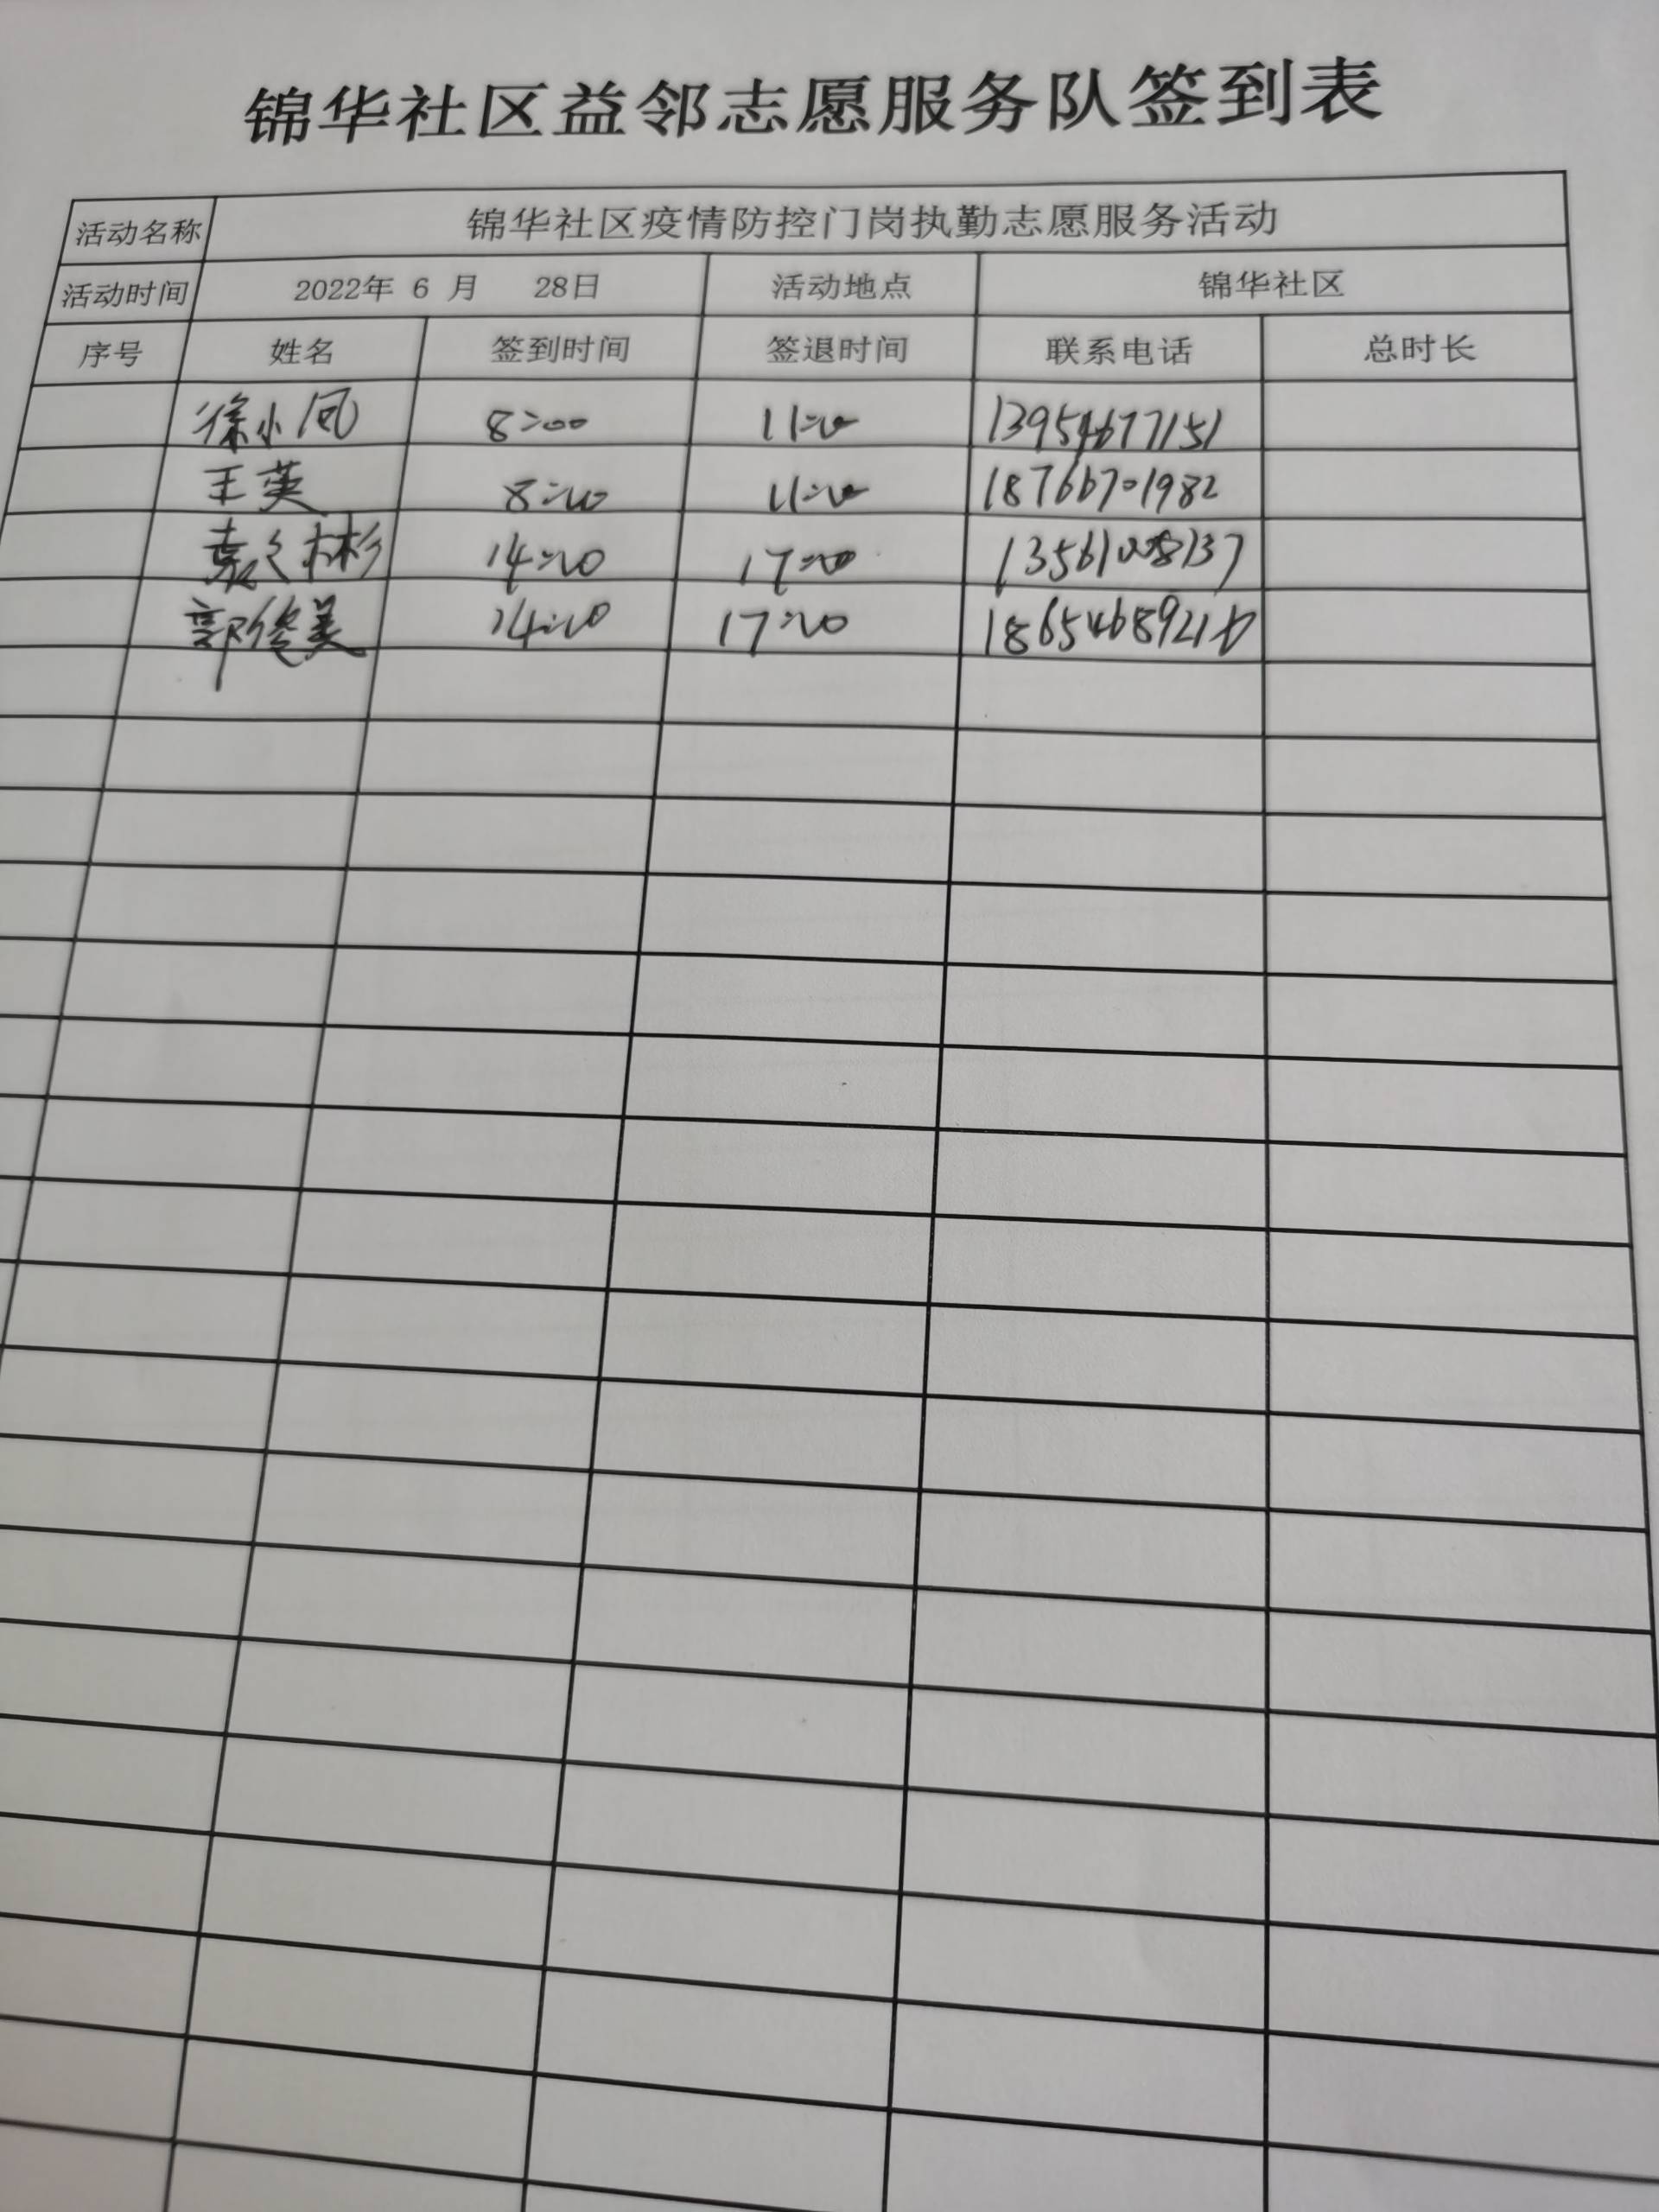 锦华社区益邻志愿服务队签到表
活动名称 锦华社区疫情防控门岗执勤志愿服务活动
活动时间 2022年 6 月 28日 活动地点 锦华社区
序号 姓名 签到时间 签退时间 联系电话 总时长
徐小凤 8:00 11:00 13954677151
王英 8:00 11:00 18766701982
袁久彬 14:00 17:00
郭俊美 14:00 17:00